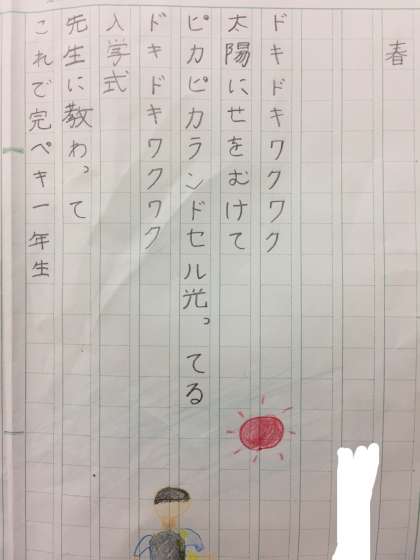 春
ドキドキワクワク
太陽にせをむけて
ピカピカランドセル光ってる
ドキドキワクワク
入学式
先生に教わって
これで完ペキ一年生